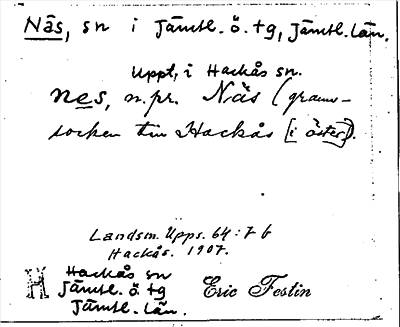 Näs, sn i Jämtl. ö. tg, Jämtl. län.
Uppt, i Hackås sn.
nes, n.pr. Näs (grann-
socken till Hackås [i öster]).
Landsm. Upps. 64:7 b
Hackås. 1907.
H Hackås sn
Jämtl. ö. tg Eric Festin
Jämtl. län.